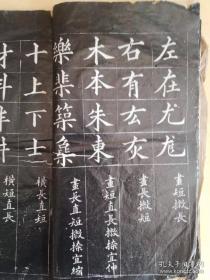 左在尤尨
畫短撇長
右有厷灰
畫長撇短
木本朱東
畫短直長撇捺宜伸
樂棐築
畫長直短撇捺宜縮
十上下士
橫長直短
才斗丰井
橫短直長